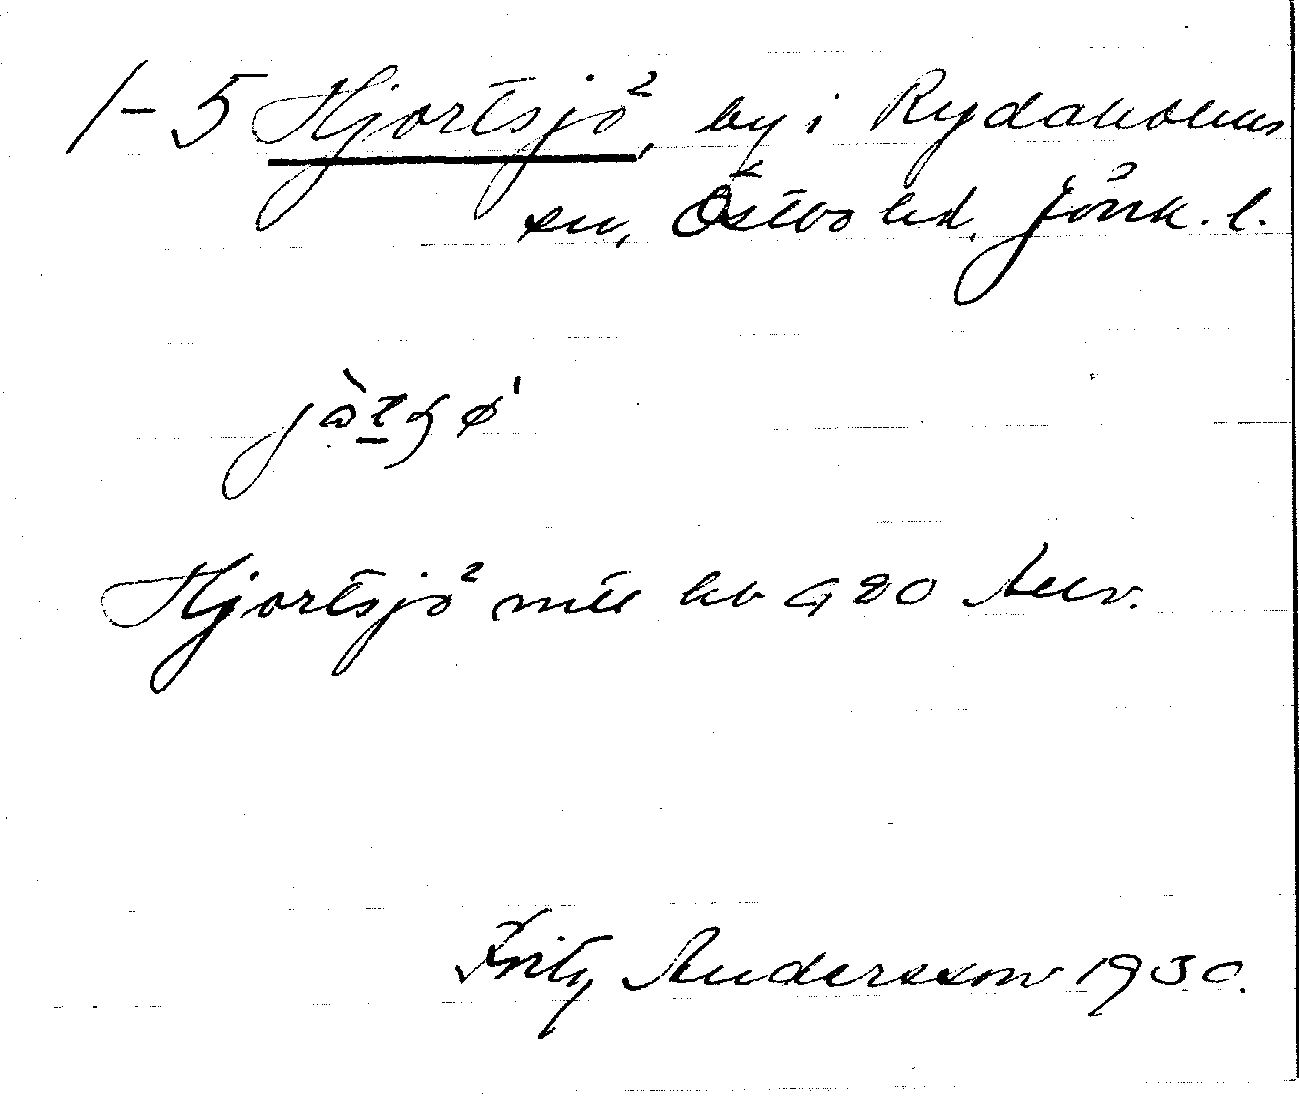 1-5 Hjortsjö, by i Rydaholms
sn, Östbo hd, Jönk. l.
Hjortsjö mtl kb G 20 Anv.
Fritz Andersson 1930.